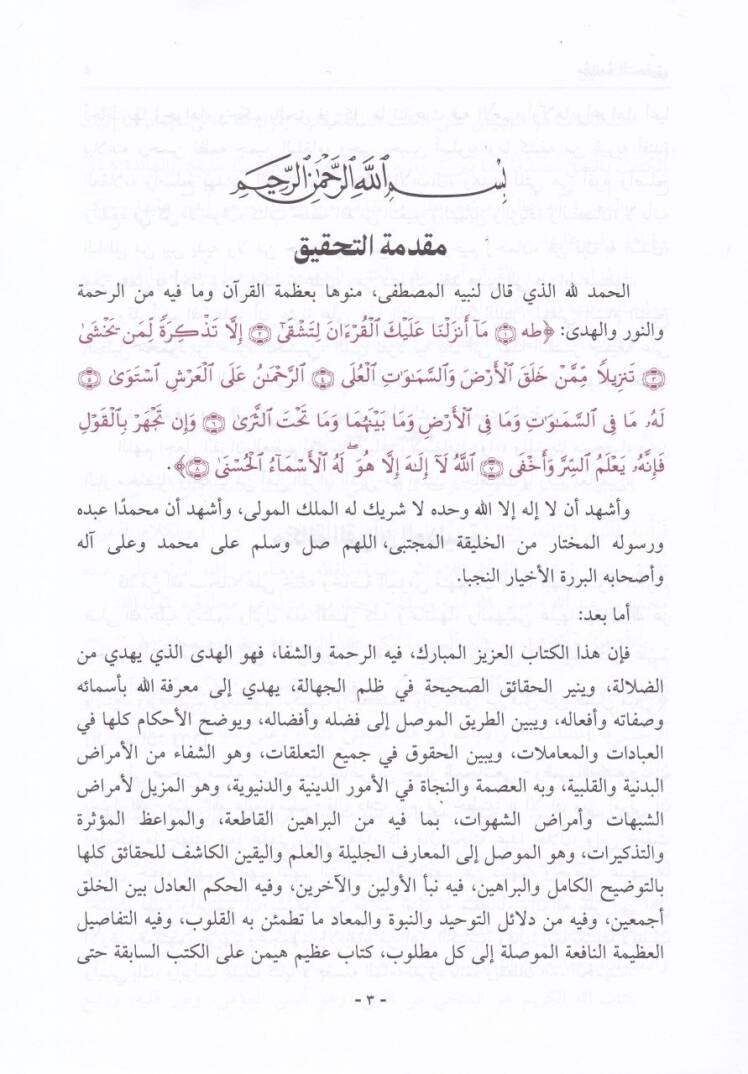 بسم الله الرحمن الرحيم
مقدمة التحقيق
الحمد لله الذي قال لنبيه المصطفى، منوها بعظمة القرآن وما فيه من الرحمة
والنور والهدى: ﴿طه ۝١ مَآ أَنزَلْنَا عَلَيْكَ ٱلْقُرْءَانَ لِتَشْقَىٰٓ ۝٢ إِلَّا تَذْكِرَةً لِّمَن يَخْشَىٰ
۝٣ تَنزِيلًا مِّمَّنْ خَلَقَ ٱلْأَرْضَ وَٱلسَّمَٰوَٰتِ ٱلْعُلَى ۝٤ ٱلرَّحْمَٰنُ عَلَى ٱلْعَرْشِ ٱسْتَوَىٰ ۝٥
لَهُۥ مَا فِى ٱلسَّمَٰوَٰتِ وَمَا فِى ٱلْأَرْضِ وَمَا بَيْنَهُمَا وَمَا تَحْتَ ٱلثَّرَىٰ ۝٦ وَإِن تَجْهَرْ بِٱلْقَوْلِ
فَإِنَّهُۥ يَعْلَمُ ٱلسِّرَّ وَأَخْفَى ۝٧ ٱللَّهُ لَآ إِلَٰهَ إِلَّا هُوَ ۖ لَهُ ٱلْأَسْمَآءُ ٱلْحُسْنَىٰ ۝٨﴾.
وأشهد أن لا إله إلا الله وحده لا شريك له الملك المولى، وأشهد أن محمدًا عبده
ورسوله المختار من الخليقة المجتبى، اللهم صل وسلم على محمد وعلى آله
وأصحابه البررة الأخيار النجبا.
أما بعد:
فإن هذا الكتاب العزيز المبارك، فيه الرحمة والشفا، فهو الهدى الذي يهدي من
الضلالة، وينير الحقائق الصحيحة في ظلم الجهالة، يهدي إلى معرفة الله بأسمائه
وصفاته وأفعاله، ويبين الطريق الموصل إلى فضله وأفضاله، ويوضح الأحكام كلها في
العبادات والمعاملات، ويبين الحقوق في جميع التعلقات، وهو الشفاء من الأمراض
البدنية والقلبية، وبه العصمة والنجاة في الأمور الدينية والدنيوية، وهو المزيل لأمراض
الشبهات وأمراض الشهوات، بما فيه من البراهين القاطعة، والمواعظ المؤثرة
والتذكيرات، وهو الموصل إلى المعارف الجليلة والعلم واليقين الكاشف للحقائق كلها
بالتوضيح الكامل والبراهين، فيه نبأ الأولين والآخرين، وفيه الحكم العادل بين الخلق
أجمعين، وفيه من دلائل التوحيد والنبوة والمعاد ما تطمئن به القلوب، وفيه التفاصيل
العظيمة النافعة الموصلة إلى كل مطلوب، كتاب عظيم هيمن على الكتب السابقة حتى
- ٣ -